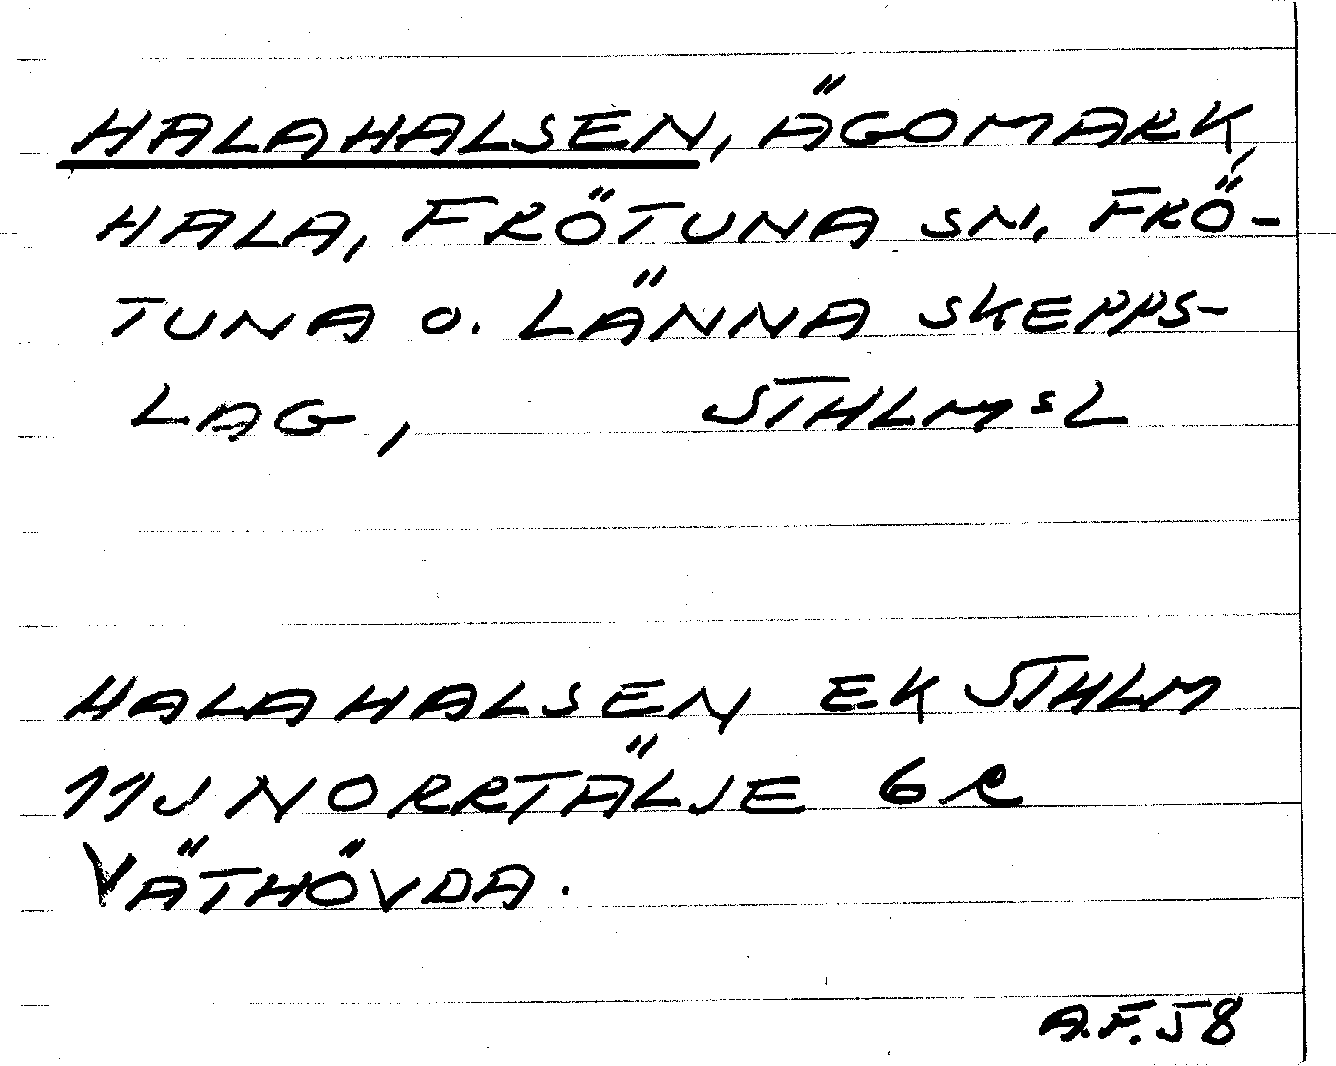 HALAHALSEN, ÄGOMARK,
HALA, FRÖTUNA SN, FRÖ-
TUNA O. LÄNNA SKEPPS-
LAG, STHLMSL
HALAHALSEN EK STHLM
11J NORRTÄLJE 6R
VÄTHÖVDA.
A.F. 58